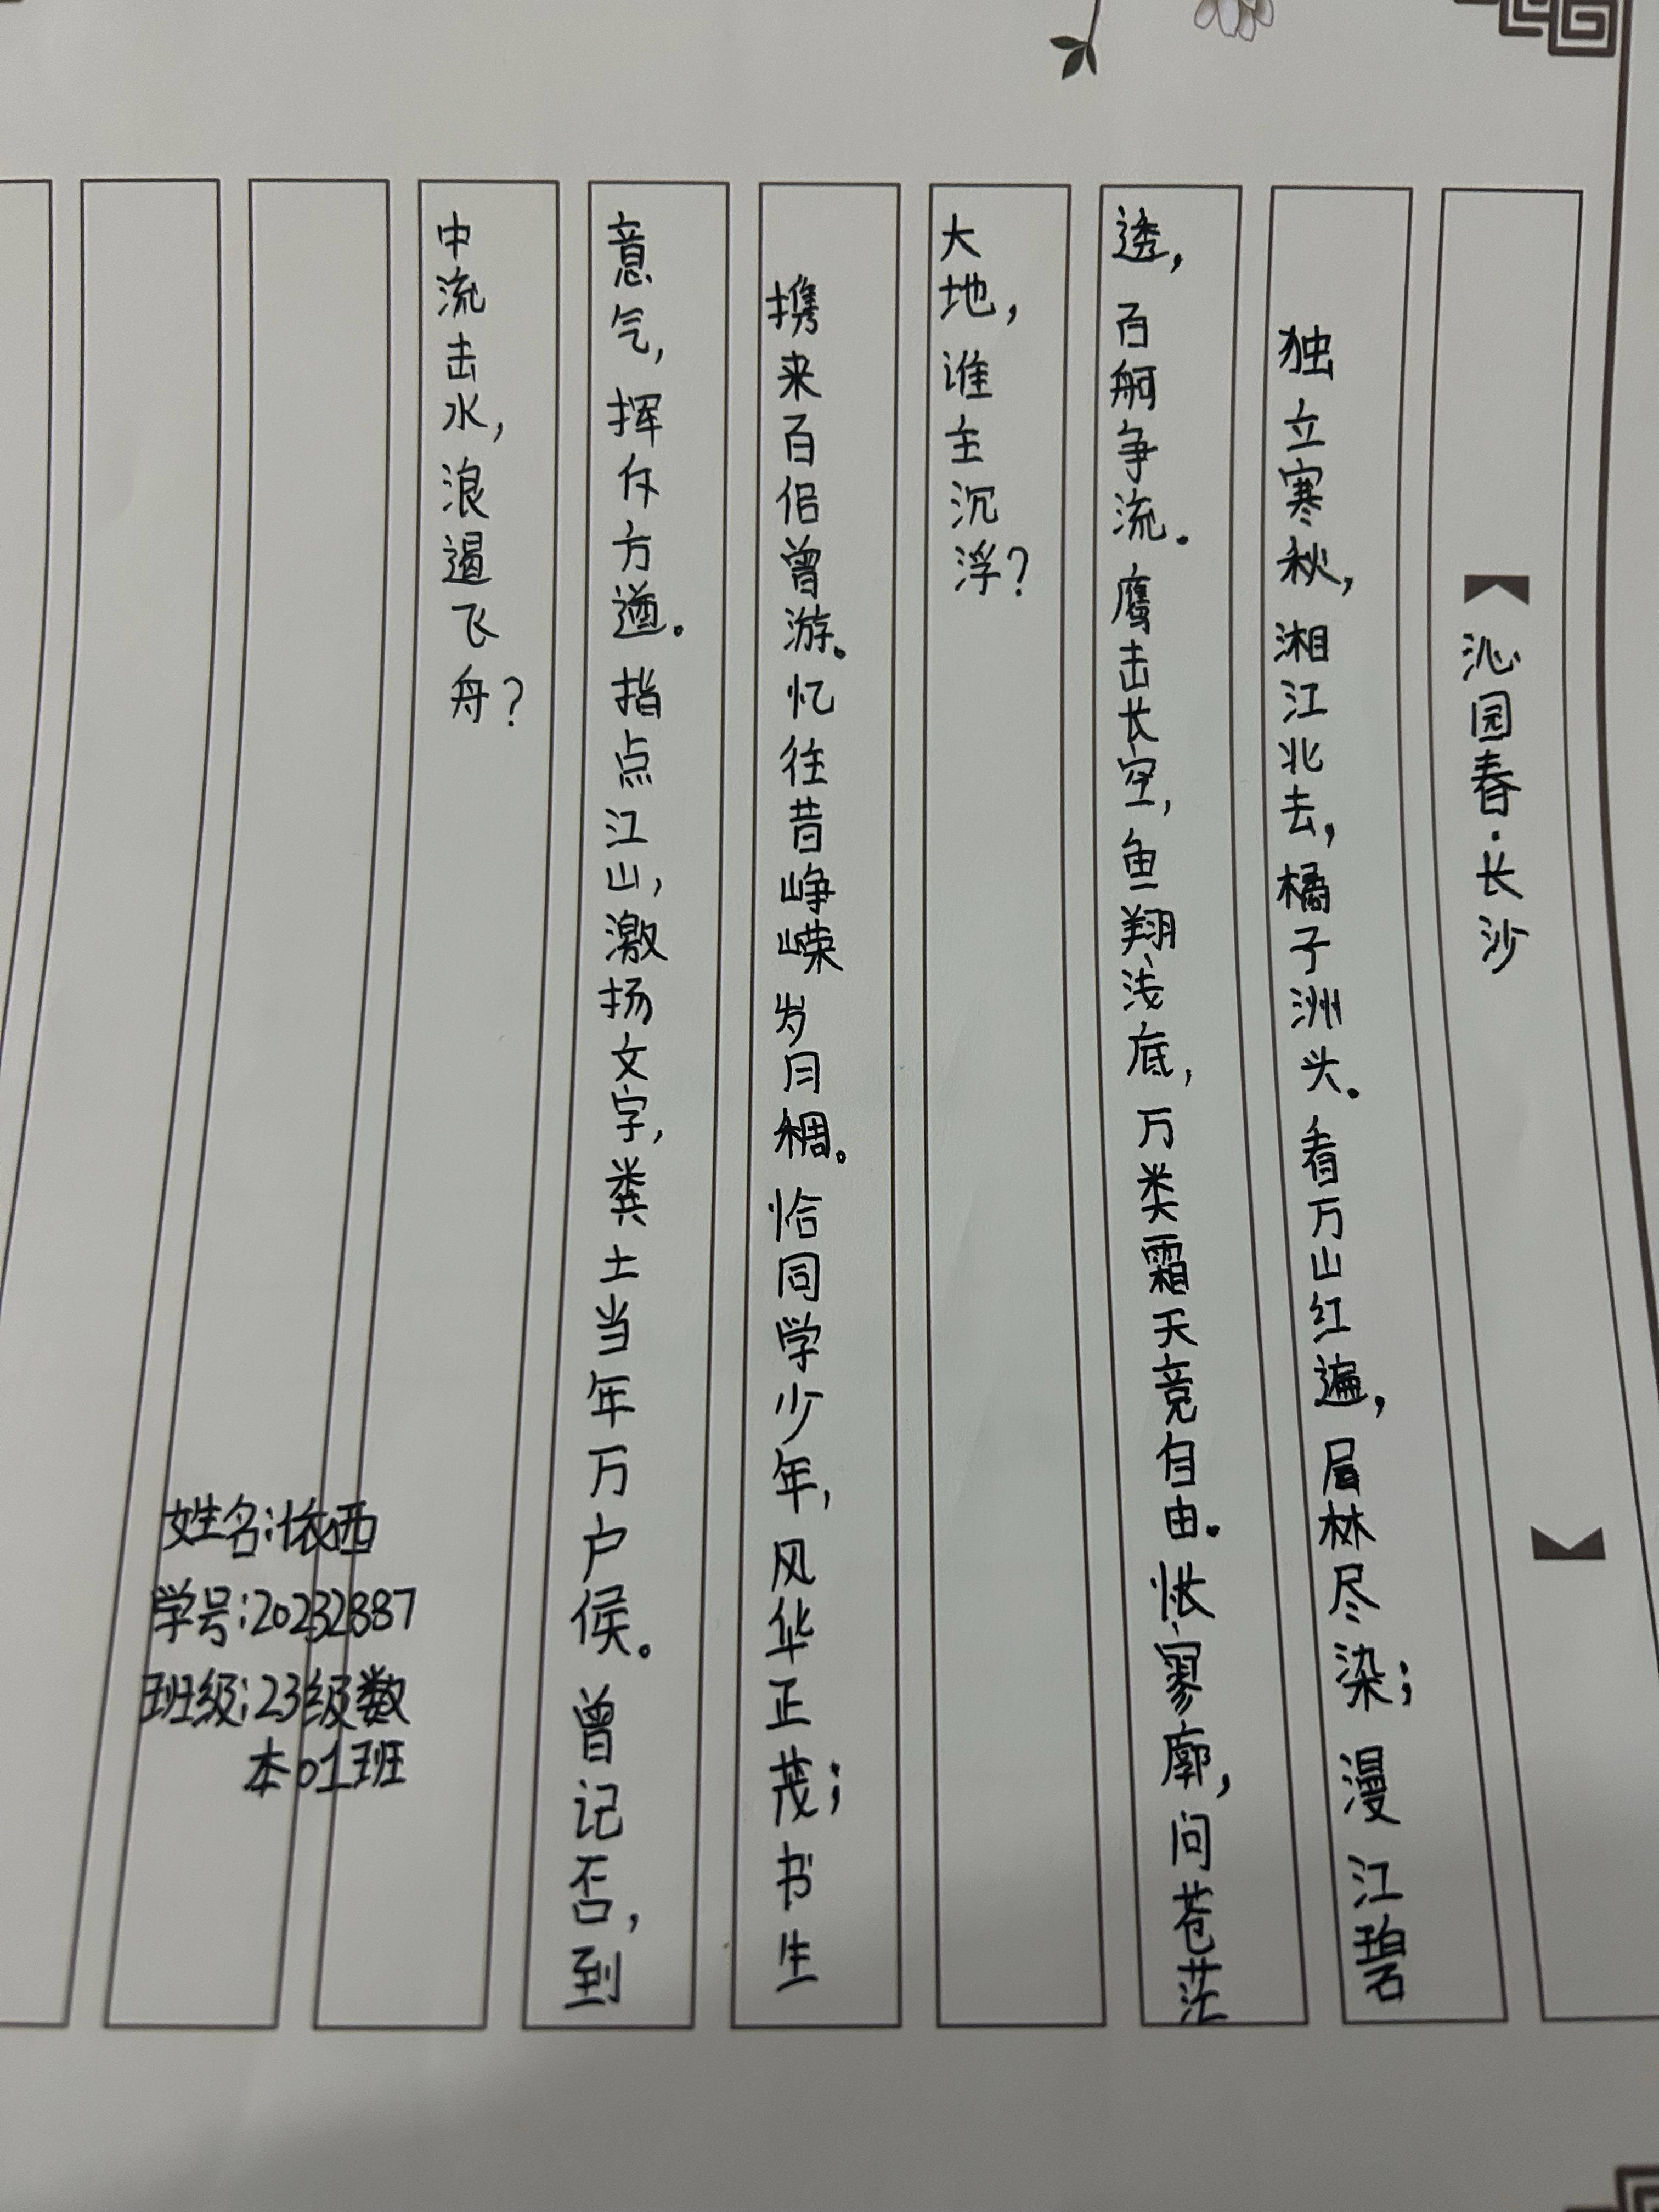 【沁园春·长沙】
独立寒秋，湘江北去，橘子洲头。看万山红遍，层林尽染；漫江碧
透，百舸争流。鹰击长空，鱼翔浅底，万类霜天竞自由。怅寥廓，问苍茫
大地，谁主沉浮？
携来百侣曾游。忆往昔峥嵘岁月稠。恰同学少年，风华正茂；书生
意气，挥斥方遒。指点江山，激扬文字，粪土当年万户侯。曾记否，到
中流击水，浪遏飞舟？
姓名：依西
学号：20232887
班级：23级数
本01班